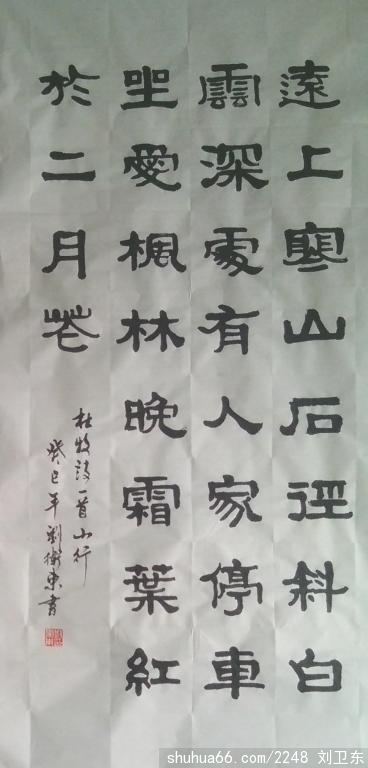 遠上寒山石徑斜白
雲深處有人家停車
坐愛楓林晚霜葉紅
於二月花
杜牧诗一首山行
癸巳年劉衛東書
shuhua66.com/2248 刘卫东